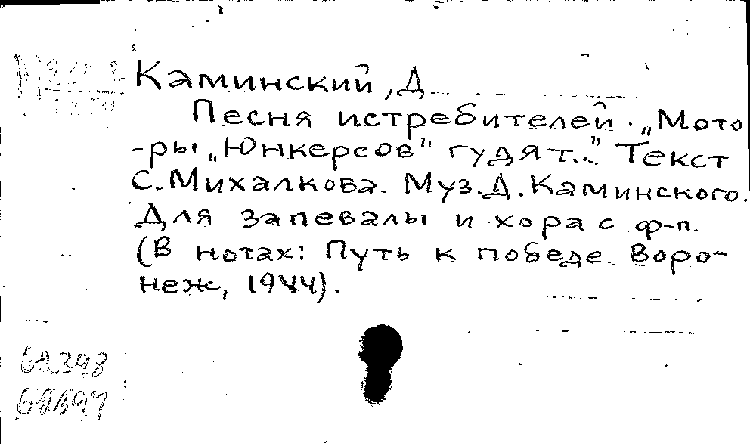 Каминский, Д
Песня истребителей. „Мото
-ры „Юнкерсов" гудят..." Текст
С. Михалкова. Муз. Д. Каминского.
Для запевалы и хора с ф-п.
(В нотах: Путь к победе. Воро-
неж, 1944).